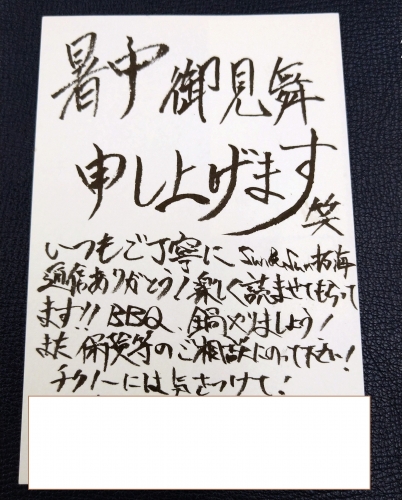 暑中御見舞
申し上げます
笑
いつもご丁寧に
通信ありがとう!楽しく読ませてもらって
ます!!BBQ、鍋やりましょう!
また保険等のご相談にのって下さい!
チクノーには気をつけて!